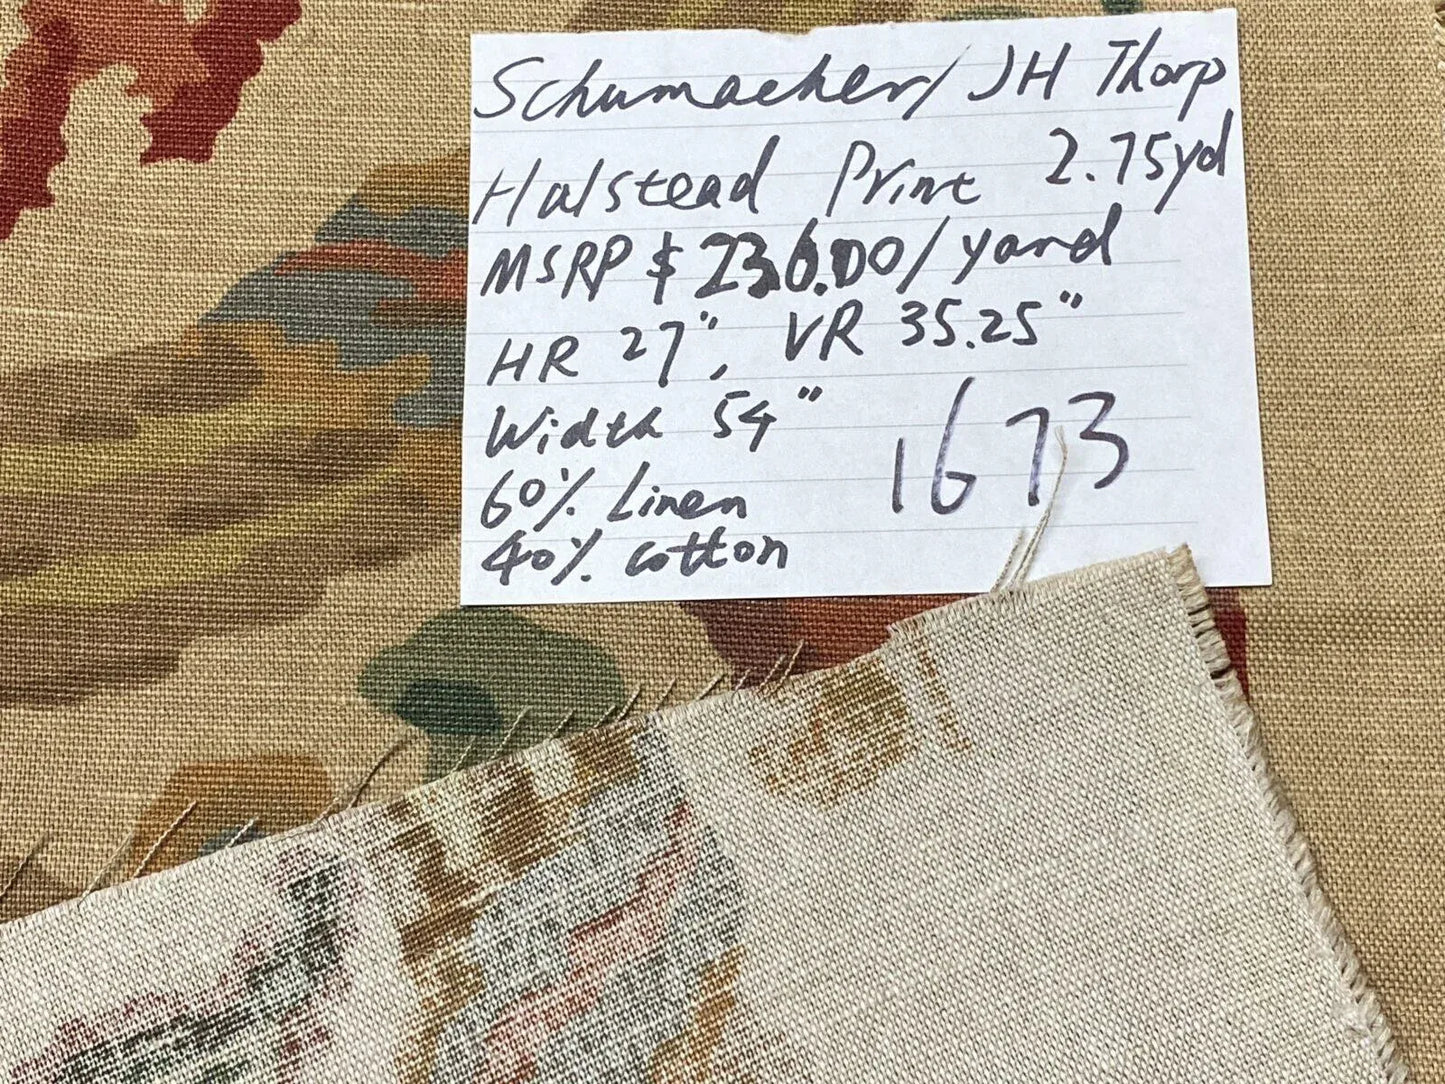 Schumacher/ JH Thorp
Halstead Print 2.75yd
MSRP $236.00/yard
HR 27", VR 35.25"
Width 54"
1673
60% Linen
40% cotton